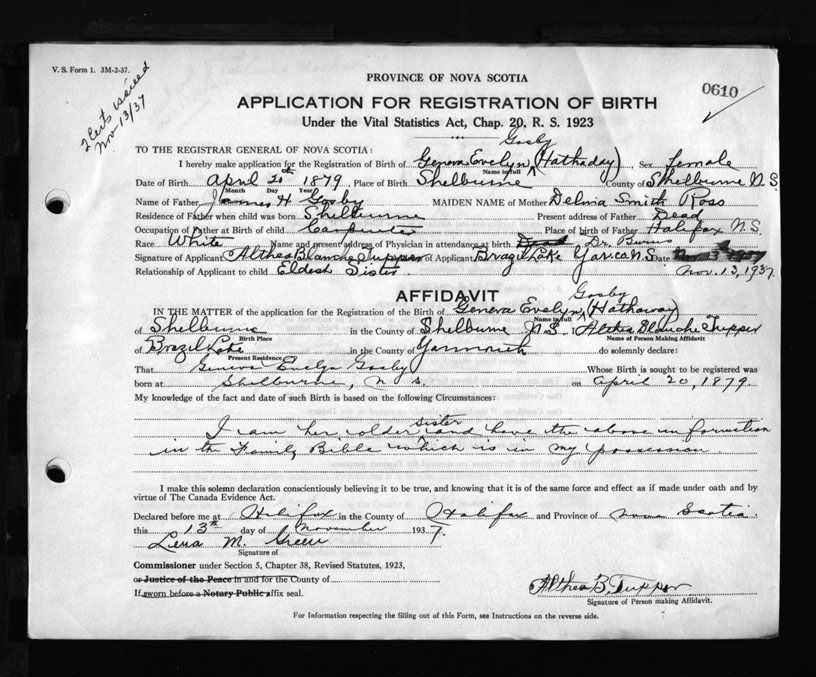 V. S. Form 1. 3M-2-37.
2 Certs issued
Nov 13/37
PROVINCE OF NOVA SCOTIA
0610
APPLICATION FOR REGISTRATION OF BIRTH
Under the Vital Statistics Act, Chap. 20, R. S. 1923
TO THE REGISTRAR GENERAL OF NOVA SCOTIA:
Gosby
I hereby make application for the Registration of Birth of Geneva Evelyn (Hathaday) Sex female
Name in full
Date of Birth April 20th 1879 Place of Birth Shelburne County of Shelburne N.S.
Month Day Year
Name of Father James H Gosby MAIDEN NAME of Mother Delma Smith Ross
Residence of Father when child was born Shelburne Present address of Father Dead
Occupation of Father at Birth of child Carpenter Place of birth of Father Halifax N.S.
Race White Name and present address of Physician in attendance at birth Dead Dr. Burns
Signature of Applicant Althea Blanche Tupper of Applicant Brazil Lake Yar. co. N.S. Date
Relationship of Applicant to child Eldest Sister Nov. 13, 1937.
AFFIDAVIT
Gosby
IN THE MATTER of the application for the Registration of the Birth of Geneva Evelyn (Hathaway)
Name in full
of Shelburne in the County of Shelburne N.S. I Althea Blanche Tupper
Birth Place Name of Person Making Affidavit
of Brazil Lake in the County of Yarmouth do solemnly declare:
Present Residence
That Geneva Evelyn Gosby Whose Birth is sought to be registered was
born at Shelburne, N S. on April 20, 1879.
My knowledge of the fact and date of such Birth is based on the following Circumstances:
sister
I am her older and have the above information
in the Family Bible which is in my possession
I make this solemn declaration conscientiously believing it to be true, and knowing that it is of the same force and effect as if made under oath and by
virtue of The Canada Evidence Act.
Declared before me at Halifax in the County of Halifax and Province of Nova Scotia
this 13th day of November 1937.
Lena M. Green
Signature of
Commissioner under Section 5, Chapter 38, Revised Statutes, 1923,
or Justice of the Peace in and for the County of
If sworn before a Notary Public affix seal.
Althea B. Tupper
Signature of Person making Affidavit.
For Information respecting the filling out of this Form, see Instructions on the reverse side.